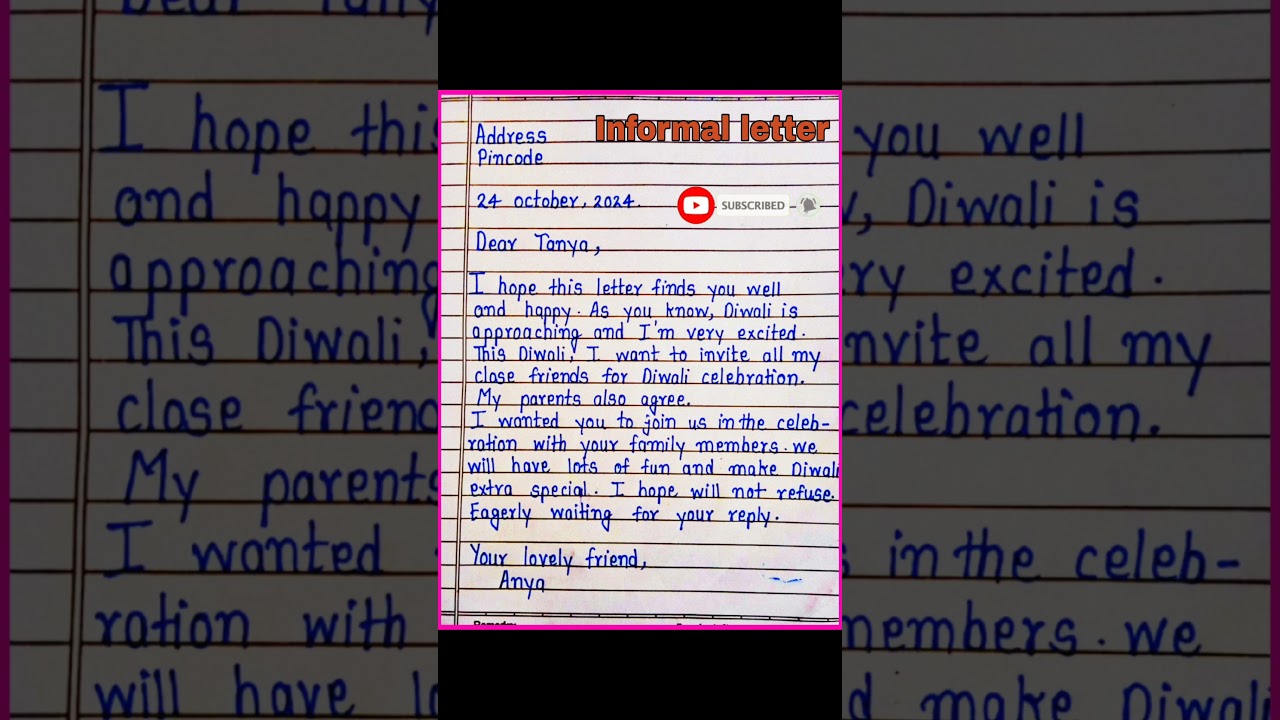 Informal letter
Address
Pincode
24 october, 2024.
SUBSCRIBED
Dear Tanya,
I hope this letter finds you well
and happy. As you know, Diwali is
approaching and I'm very excited.
This Diwali, I want to invite all my
close friends for Diwali celebration.
My parents also agree.
I wanted you to join us in the celeb-
ration with your family members. we
will have lots of fun and make Diwali
extra special. I hope will not refuse.
Eagerly waiting for your reply.
Your lovely friend,
Anya